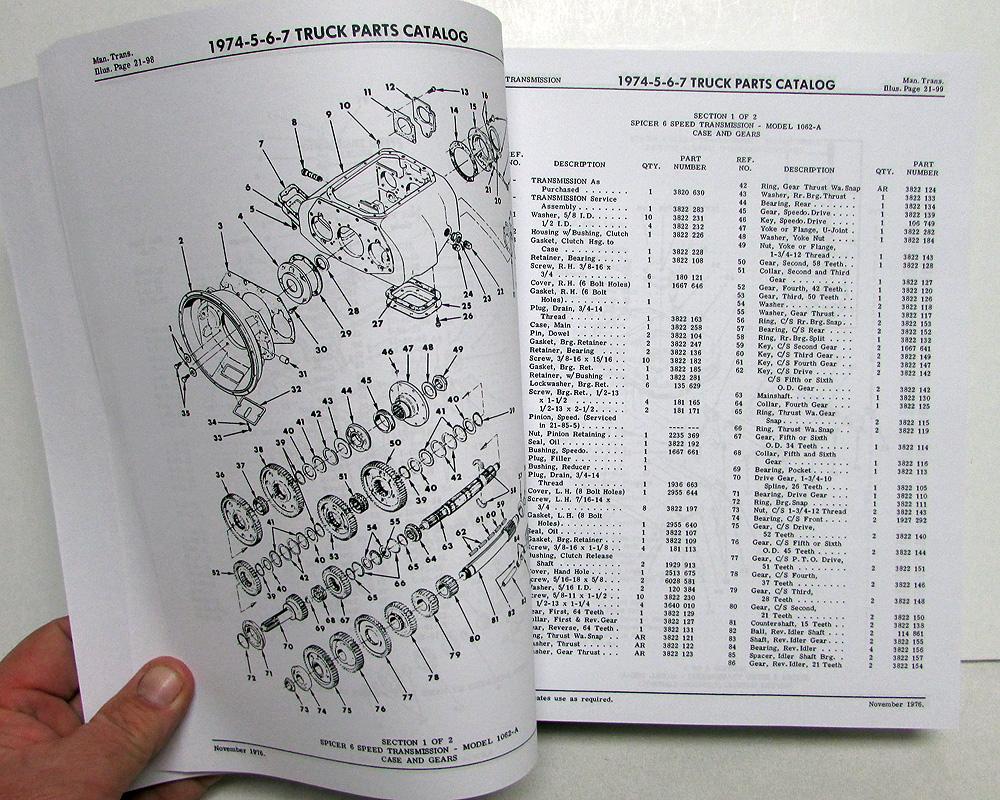 Man. Trans.
Illus. Page 21-98
1974-5-6-7 TRUCK PARTS CATALOG
November 1976.
SECTION 1 OF 2
SPICER 6 SPEED TRANSMISSION - MODEL 1062-A
CASE AND GEARS
TRANSMISSION
1974-5-6-7 TRUCK PARTS CATALOG
Man. Trans.
Illus. Page 21-99
SECTION 1 OF 2
SPICER 6 SPEED TRANSMISSION - MODEL 1062-A
CASE AND GEARS
REF. NO. DESCRIPTION QTY. PART NUMBER
TRANSMISSION As
Purchased . . . . . . . 1 3820 630
TRANSMISSION Service
Assembly . . . . . . . 1 3822 283
Washer, 5/8 I.D. . . . . 10 3822 231
1/2 I.D. . . . . 4 3822 232
Housing w/Bushing, Clutch 1 3822 226
Gasket, Clutch Hsg. to
Case . . . . . . . 1 3822 228
Retainer, Bearing . . . . 1 3822 108
Screw, R.H. 3/8-16 x
3/4 . . . . . . . 6 180 121
Cover, R.H. (6 Bolt Holes) 1 1667 646
Gasket, R.H. (6 Bolt
Holes). . . . . . . 1
Plug, Drain, 3/4-14
Thread . . . . . . . 1 3822 163
Case, Main . . . . . . . 1 3822 258
Pin, Dowel . . . . . . . 2 3822 104
Gasket, Brg. Retainer . . . 2 3822 247
Retainer, Bearing . . . . 2 3822 136
Screw, 3/8-16 x 15/16 . . 10 3822 182
Gasket, Brg. Ret. . . . . 1 3822 185
Retainer, w/Bushing . . . 1 3822 281
Lockwasher, Brg. Ret. . . . 6 135 629
Screw, Brg. Ret., 1/2-13
x 1-1/2 . . . . . . . 4 181 165
1/2-13 x 2-1/2 . . . . . 2 181 171
Pinion, Speed. (Serviced
in 21-85-5) . . . . . . ---- ----
Nut, Pinion Retaining . . . 1 2235 369
Seal, Oil . . . . . . . 1 3822 192
Bushing, Speedo. . . . . 1 1667 661
Plug, Filler . . . . . . 1
Bushing, Reducer . . . . 1
Plug, Drain, 3/4-14
Thread . . . . . . . 1 1936 663
Cover, L.H. (8 Bolt Holes) 1 2955 644
Screw, L.H. 7/16-14 x
3/4 . . . . . . . 8 3822 197
Gasket, L.H. (8 Bolt
Holes). . . . . . . 1 2955 640
Seal, Oil . . . . . . . 1 3822 107
Gasket, Brg. Retainer . . . 1 3822 109
Screw, 3/8-16 x 1-1/8 . . 4 181 113
Bushing, Clutch Release
Shaft . . . . . . . 2 1929 913
Cover, Hand Hole . . . . 1 2513 675
Screw, 5/16-18 x 5/8 . . . 2 6028 581
Washer, 5/16 I.D. . . . . 2 120 384
Screw, 5/8-11 x 1-1/2 . . 10 3822 230
1/2-13 x 1-1/4 . . . . 4 3640 010
Gear, First, 64 Teeth . . . 1 3822 129
Collar, First & Rev. Gear 1 3822 127
Gear, Reverse, 64 Teeth . . 1 3822 131
Ring, Thrust Wa. Snap . . . AR 3822 121
Washer, Thrust . . . . . AR 3822 122
Washer, Gear Thrust . . . AR 3822 123
REF. NO. DESCRIPTION QTY. PART NUMBER
42 Ring, Gear Thrust Wa. Snap AR 3822 124
43 Washer, Rr. Brg. Thrust . 1 3822 133
44 Bearing, Rear . . . . . 1 3822 134
45 Gear, Speedo. Drive . . . 1 3822 139
46 Key, Speedo. Drive . . . 1 106 749
47 Yoke or Flange, U-Joint . 1 3822 282
48 Washer, Yoke Nut . . . . 1 3822 184
49 Nut, Yoke or Flange,
1-3/4-12 Thread . . . . 1 3822 143
50 Gear, Second, 58 Teeth . . 1 3822 128
51 Collar, Second and Third
Gear . . . . . . . 1 3822 127
52 Gear, Fourth, 42 Teeth . . 1 3822 120
53 Gear, Third, 50 Teeth . . 1 3822 126
54 Washer . . . . . . . 2 3822 118
55 Washer, Gear Thrust . . . 1 3822 117
56 Ring, C/S Rr. Brg. Snap . . 2 3822 153
57 Bearing, C/S Rear . . . . 2 3822 152
58 Ring, Rr. Brg. Split . . . 1 3822 132
59 Key, C/S Second Gear . . 2 1667 641
60 Key, C/S Third Gear . . . 2 3822 149
61 Key, C/S Fourth Gear . . 2 3822 147
62 Key, C/S Drive . . . . . 2 3822 142
C/S Fifth or Sixth
O.D. Gear . . . . . . 2 3822 142
63 Mainshaft. . . . . . . 1 3822 130
64 Collar, Fourth Gear . . . 1 3822 125
65 Ring, Thrust Wa. Gear
Snap. . . . . . . . 2 3822 115
66 Ring, Thrust Wa. Snap . . 2 3822 119
67 Gear, Fifth or Sixth
O.D. 34 Teeth . . . . . 1 3822 114
68 Collar, Fifth and Sixth
Gear . . . . . . . 1 3822 116
69 Bearing, Pocket . . . . . 1 3822 113
70 Drive Gear, 1-3/4-10
Spline, 26 Teeth . . . . 1 3822 105
71 Bearing, Drive Gear . . . 1 3822 110
72 Ring, Brg. Snap . . . . . 1 3822 111
73 Nut, C/S 1-3/4-12 Thread 2 3822 143
74 Bearing, C/S Front . . . 2 1927 292
75 Gear, C/S Drive,
52 Teeth . . . . . . . 2 3822 140
76 Gear, C/S Fifth or Sixth
O.D. 45 Teeth . . . . . 2 3822 144
77 Gear, C/S P.T.O. Drive,
51 Teeth . . . . . . . 2 3822 151
78 Gear, C/S Fourth,
37 Teeth . . . . . . . 2 3822 146
79 Gear, C/S Third,
28 Teeth . . . . . . . 2 3822 148
80 Gear, C/S Second,
21 Teeth . . . . . . . 2 3822 150
81 Countershaft, 15 Teeth . . 2 3822 138
82 Ball, Rev. Idler Shaft . . 2 114 861
83 Shaft, Rev. Idler Gear . . 2 3822 155
84 Bearing, Rev. Idler . . . 4 3822 156
85 Spacer, Idler Shaft Brg. . 2 3822 157
86 Gear, Rev. Idler, 21 Teeth 2 3822 154
use as required.
November 1976.